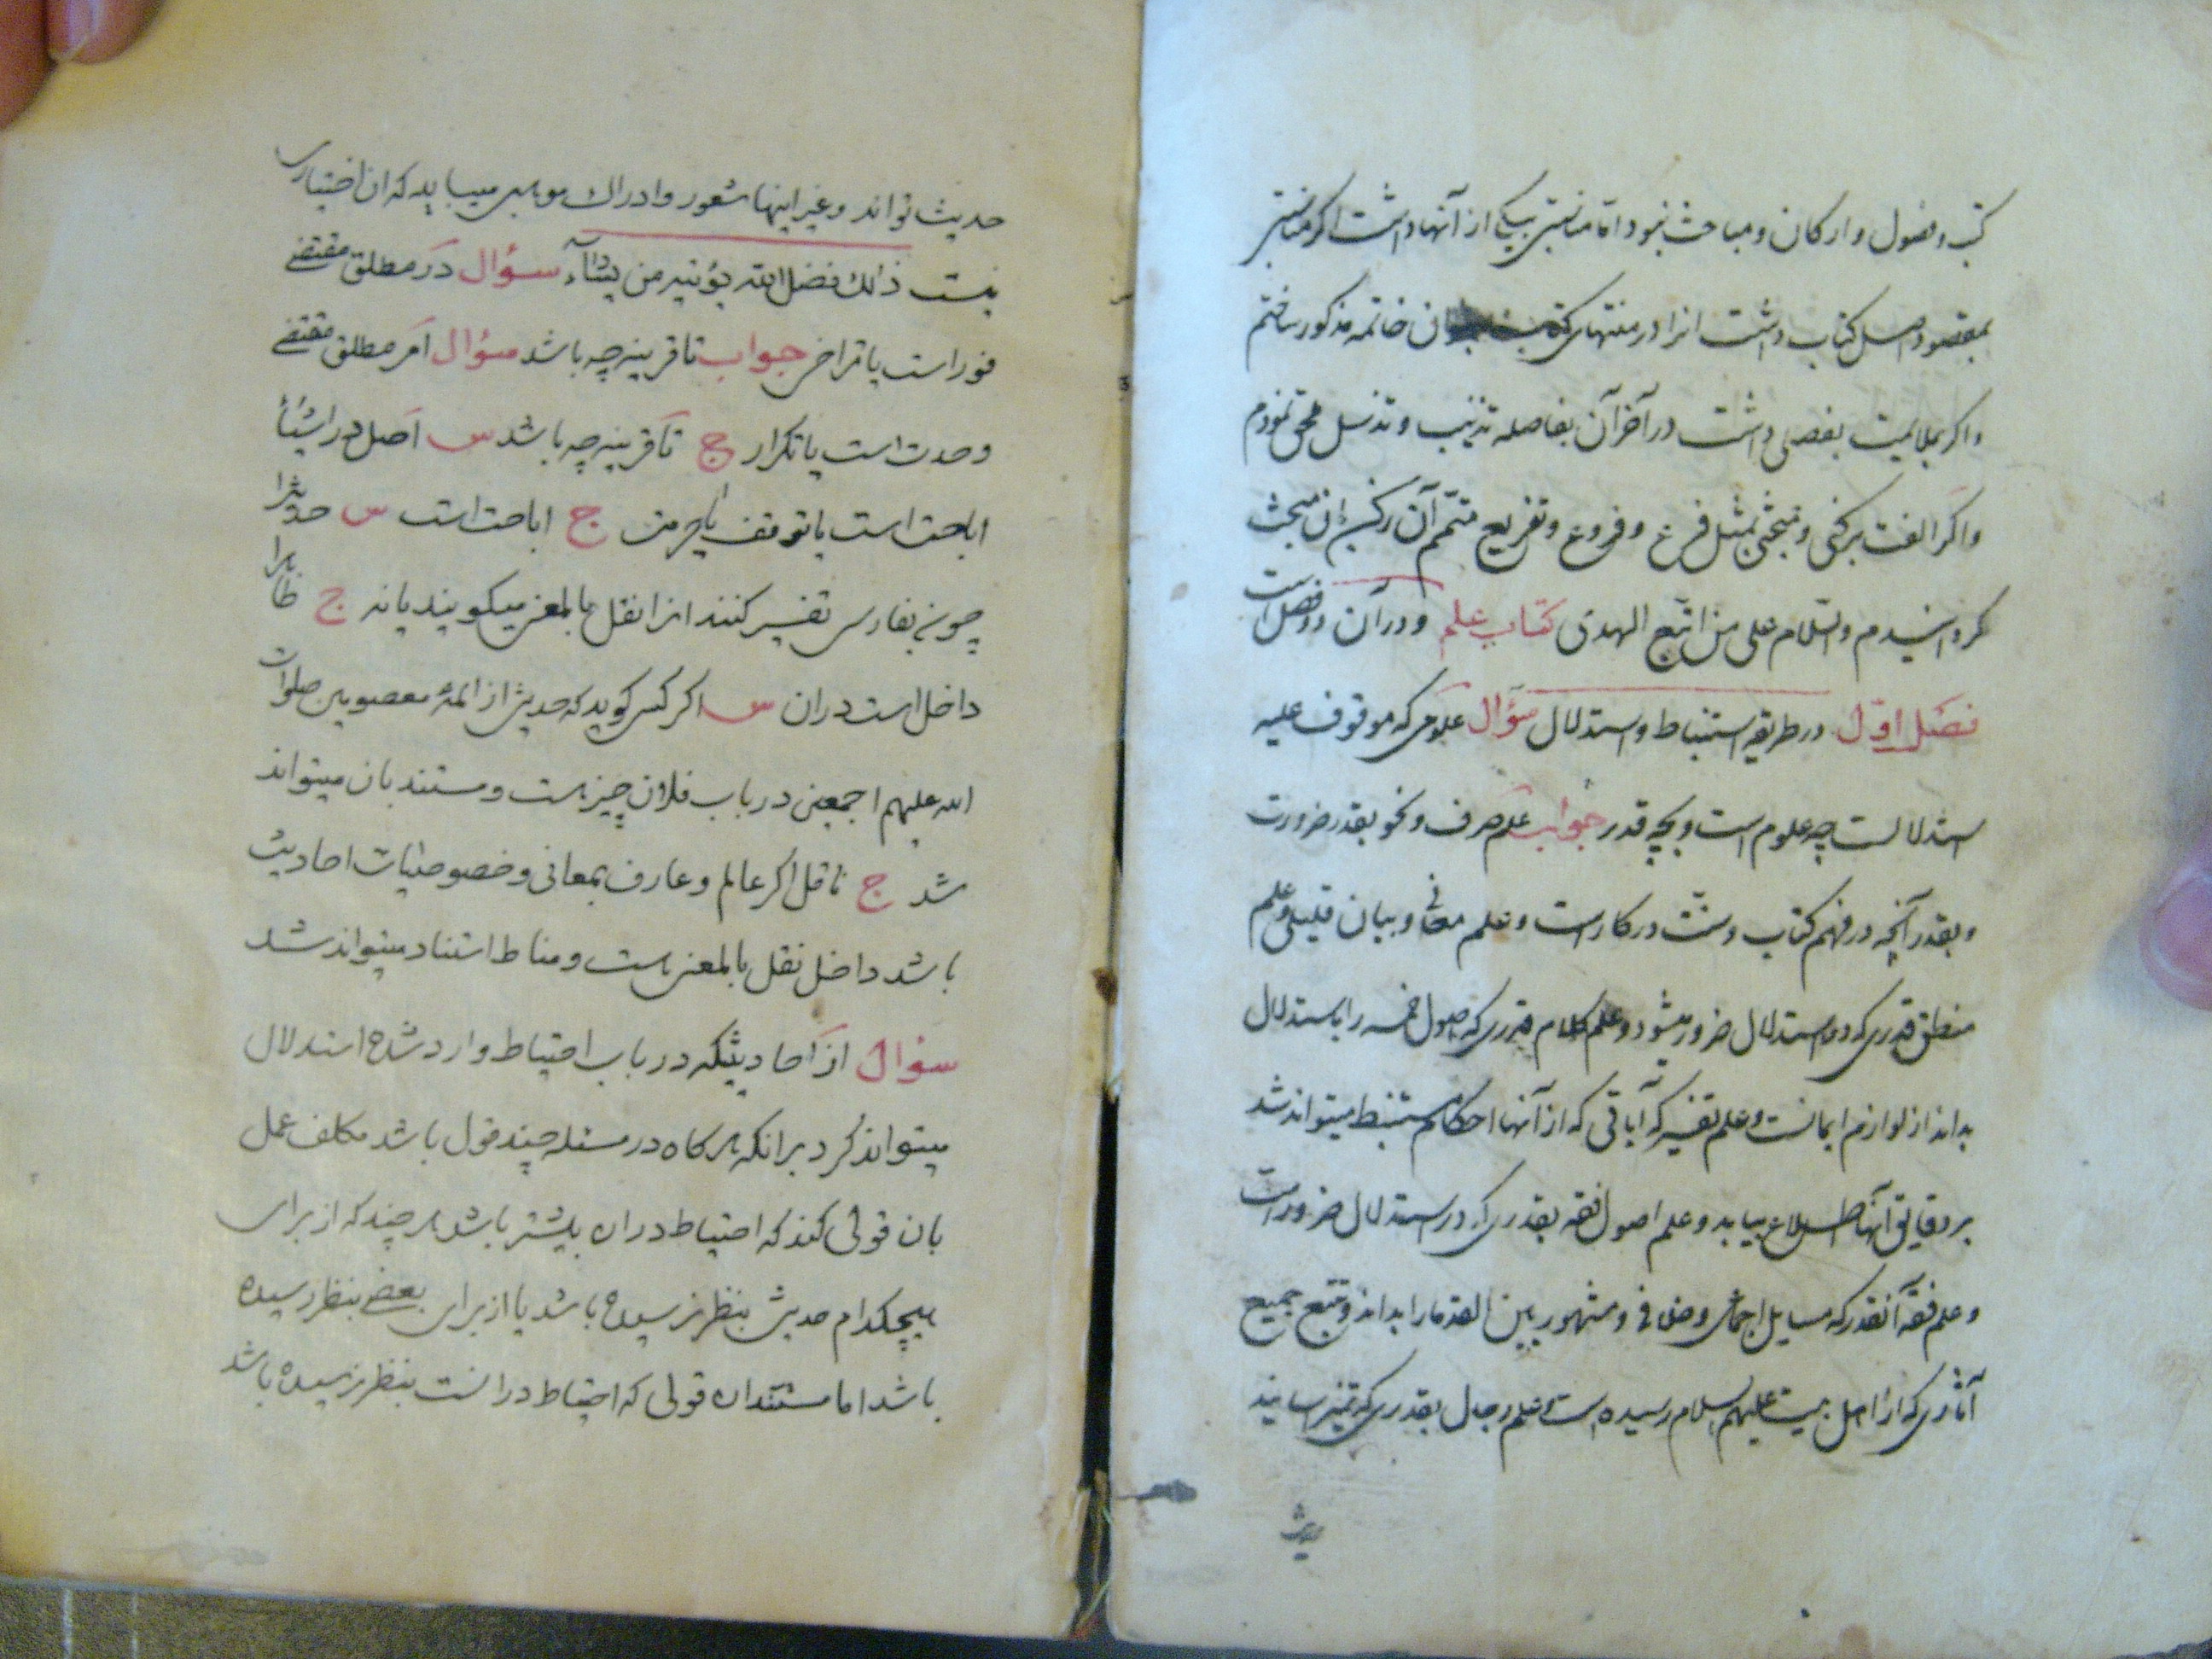 کتب و فصول و ارکان و مباحث نبود اما مناسبتی بیکی از آنها داشت اکر مناسبتی
بمقصود اصل کتاب داشت انرا در منتهای کتاب بعنوان خاتمه مذکور ساختم
و اکر بملایمت بفصلی داشت در آخر آن بفاصله تذنیب و تذییل ملحق نمودم
و اکر الفت برکنی و مبحثی بمثل فرع و فروع و تفریع متمم آن رکن و ان مبحث
کردانیدم والسلام علی من اتبع الهدی کتاب علم و در آن دو فصل است
فصل اول در طریقه استنباط و استدلال سؤال علومی که موقوف علیه
استدلالست چه علوم است و بچه قدر جواب علم صرف و نحو بقدر ضرورت
و بقدر آنچه در فهم کتاب و سنت در کار است و علم معانی و بیان قلیلی و علم
منطق قدری که در استدلال ضرور میشود و علم کلام قدری که اصول خمسه را باستدلال
بداند از لوازم ایمانست و علم تفسیر که آیاتی که از آنها احکام مستنبط میتواند شد
بر دقایق آنها اطلاع بیابد و علم اصول فقه بقدری که در استدلال ضرور است
و علم فقه آنقدر که مسایل اجماعی و خلافی و مشهور بین القدما را بداند و تتبع جمیع
آثاری که از اهل بیت علیهم السلام رسیده است و علم رجال بقدری که تمیز اسانید
حدیث تواند و غیر اینها شعور و ادراک موهبی میباید که ان اختیاری
نیست ذلک فضل الله یؤتیه من یشآء سؤال در مطلق مقتضی
فور است یا تراخی جواب تا قرینه چه باشد سؤال امر مطلق مقتضی
وحدت است یا تکرار ج تا قرینه چه باشد س اصل در اشیاء
اباحت است یا توقف یا حرمت ج اباحت است س حدیثرا
چون بفارسی تفسیر کنند انرا نقل بالمعنی میکویند یا نه ج ظاهرا
داخل است دران س اکر کسی کوید که حدیثی از ائمه معصومین صلوات
الله علیهم اجمعین در باب فلان چیز هست و مستند بان میتواند
شد ج ناقل اکر عالم و عارف بمعانی و خصوصیات احادیث
باشد داخل نقل بالمعنی هست و مناط استناد میتواند شد
سؤال از احادیثیکه در باب احتیاط وارد شده استدلال
میتواند کرد برانکه هرکاه در مسئله چند قول باشد مکلف عمل
بان قولی کند که احتیاط دران بیشتر باشد هر چند که از برای
هیچکدام حدیثی بنظر نرسیده باشد یا از برای بعضی بنظر رسیده
باشد اما مستند ان قولی که احتیاط در انست بنظر نرسیده باشد